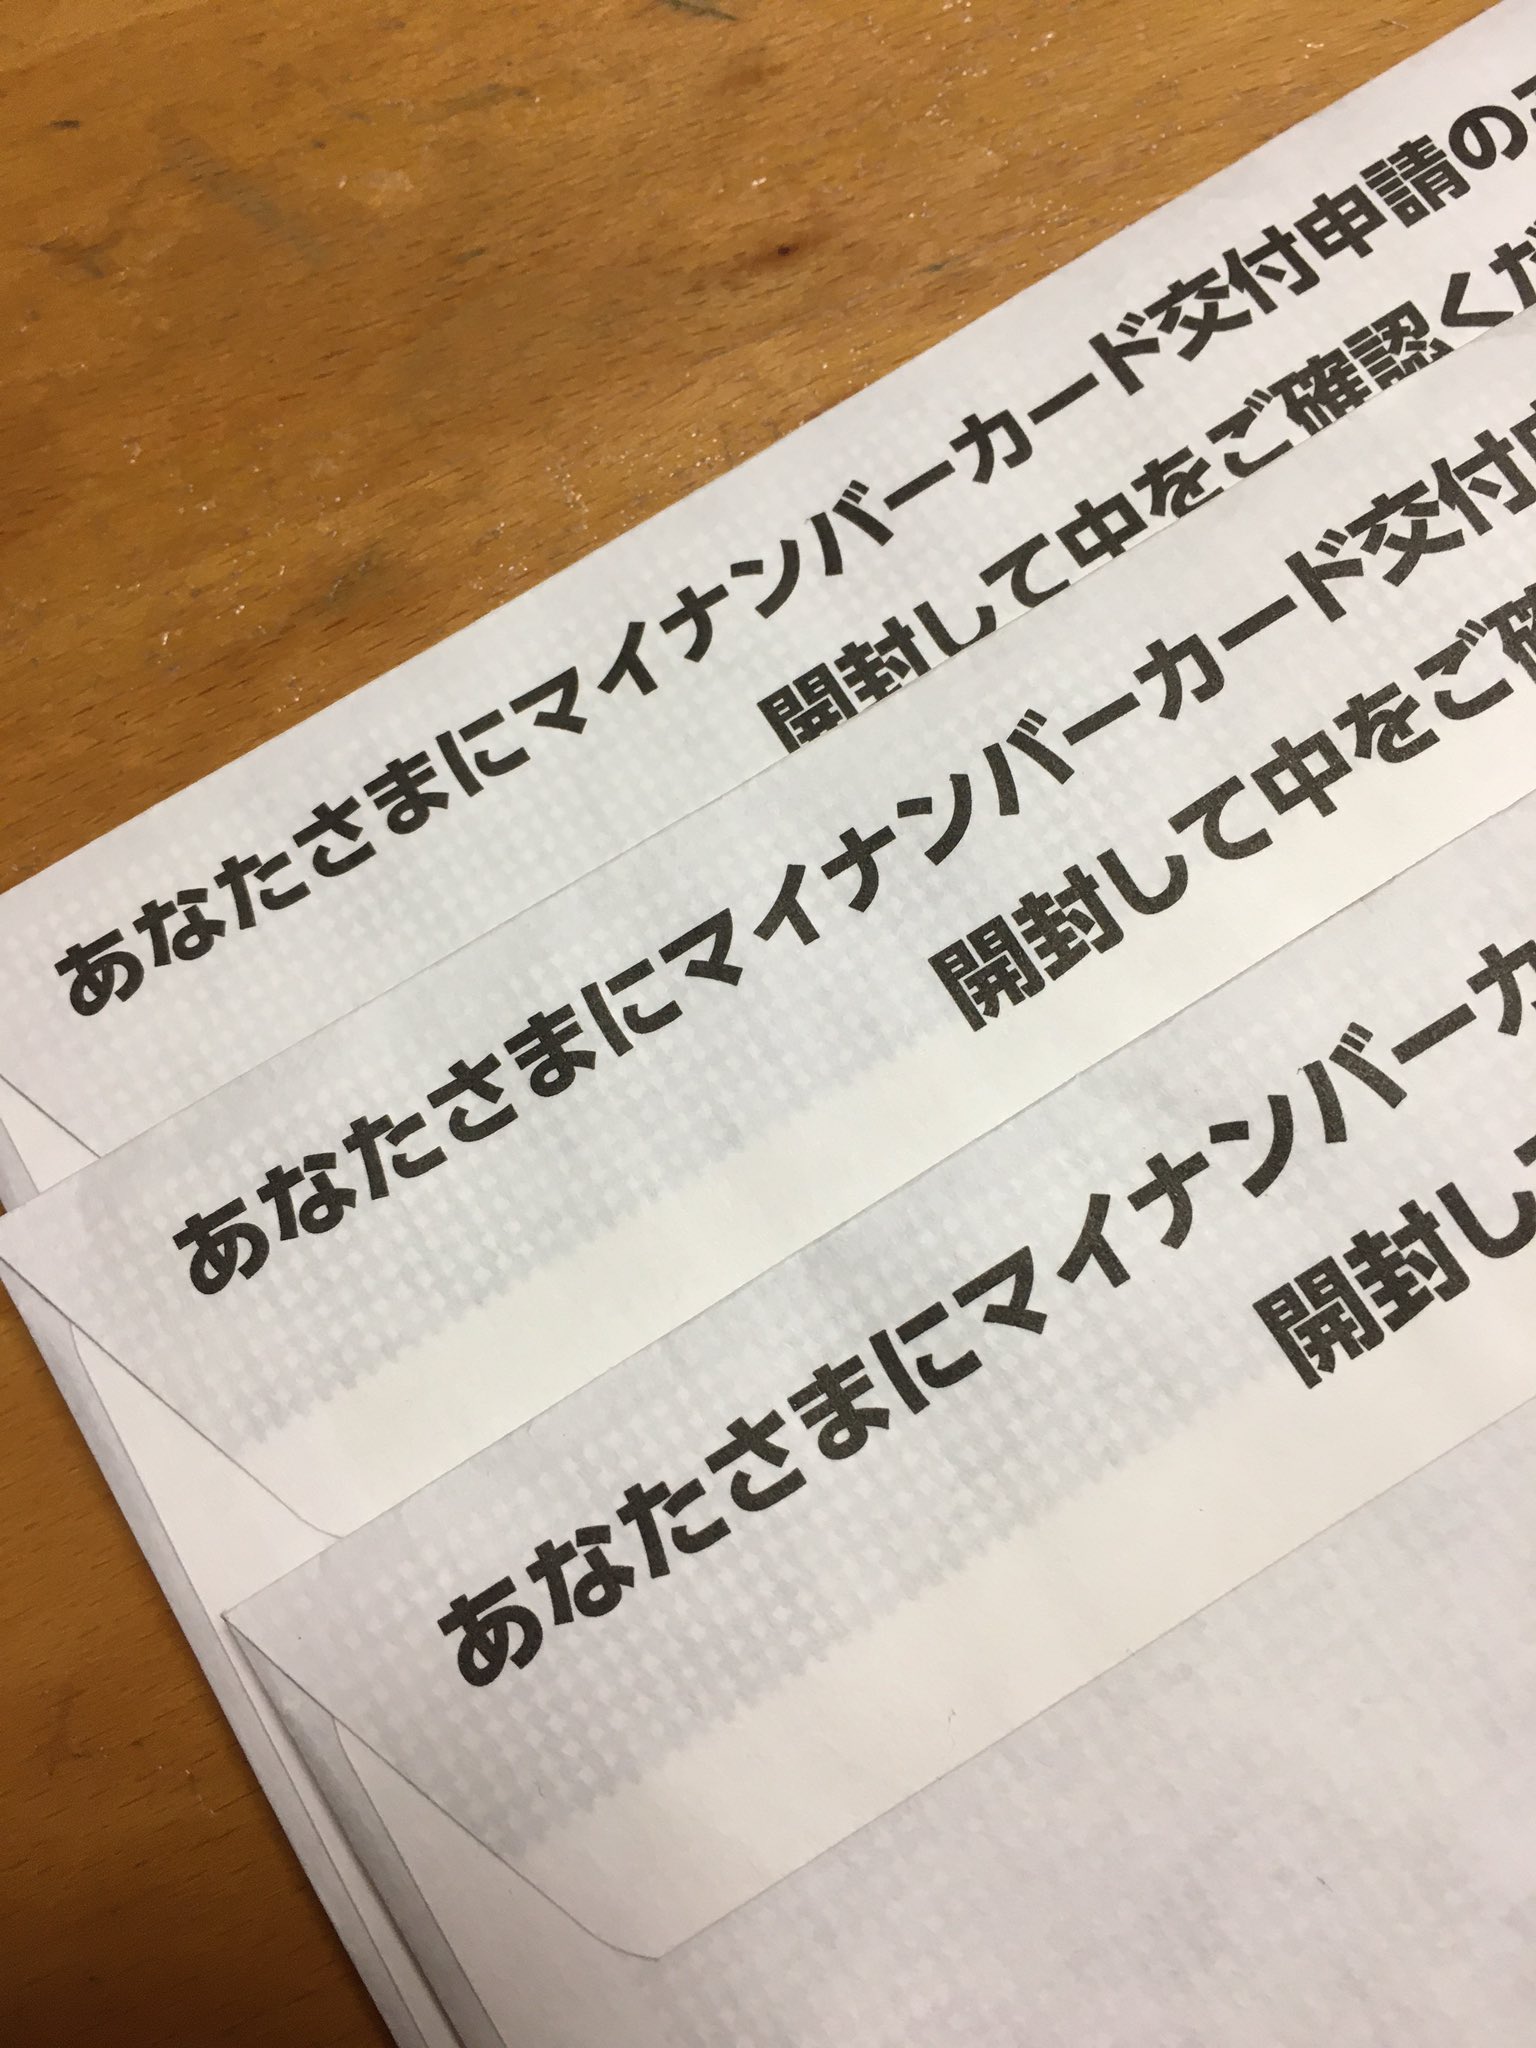 あなたさまにマイナンバーカード交付申請の
開封して中をご確認くだ
あなたさまにマイナンバーカード交付
開封して中をご確
あなたさまにマイナンバーカ
開封し